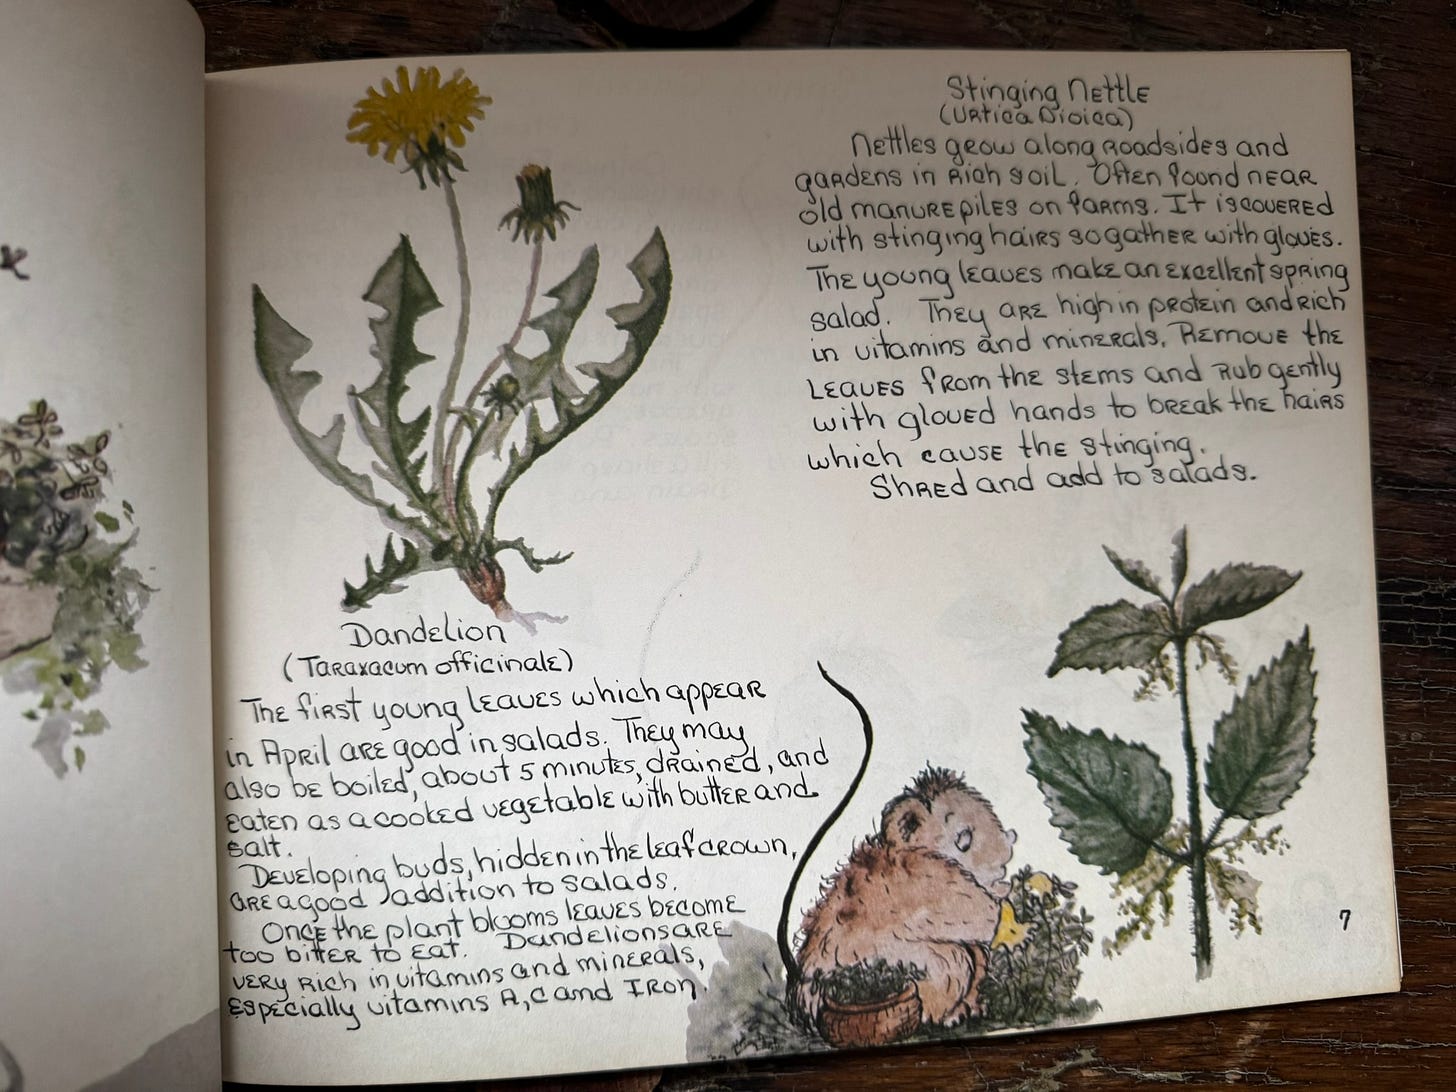 Dandelion
(Taraxacum officinale)
The first young leaves which appear
in April are good in salads. They may
also be boiled, about 5 minutes, drained, and
eaten as a cooked vegetable with butter and
salt.
Developing buds, hidden in the leaf crown,
are a good addition to salads.
Once the plant blooms leaves become
too bitter to eat. Dandelions are
very rich in vitamins and minerals,
especially vitamins A, C and Iron.
Stinging Nettle
(Urtica Dioica)
Nettles grow along roadsides and
gardens in rich soil. Often found near
old manure piles on farms. It is covered
with stinging hairs so gather with gloves.
The young leaves make an excellent spring
salad. They are high in protein and rich
in vitamins and minerals. Remove the
leaves from the stems and rub gently
with gloved hands to break the hairs
which cause the stinging.
Shred and add to salads.
7